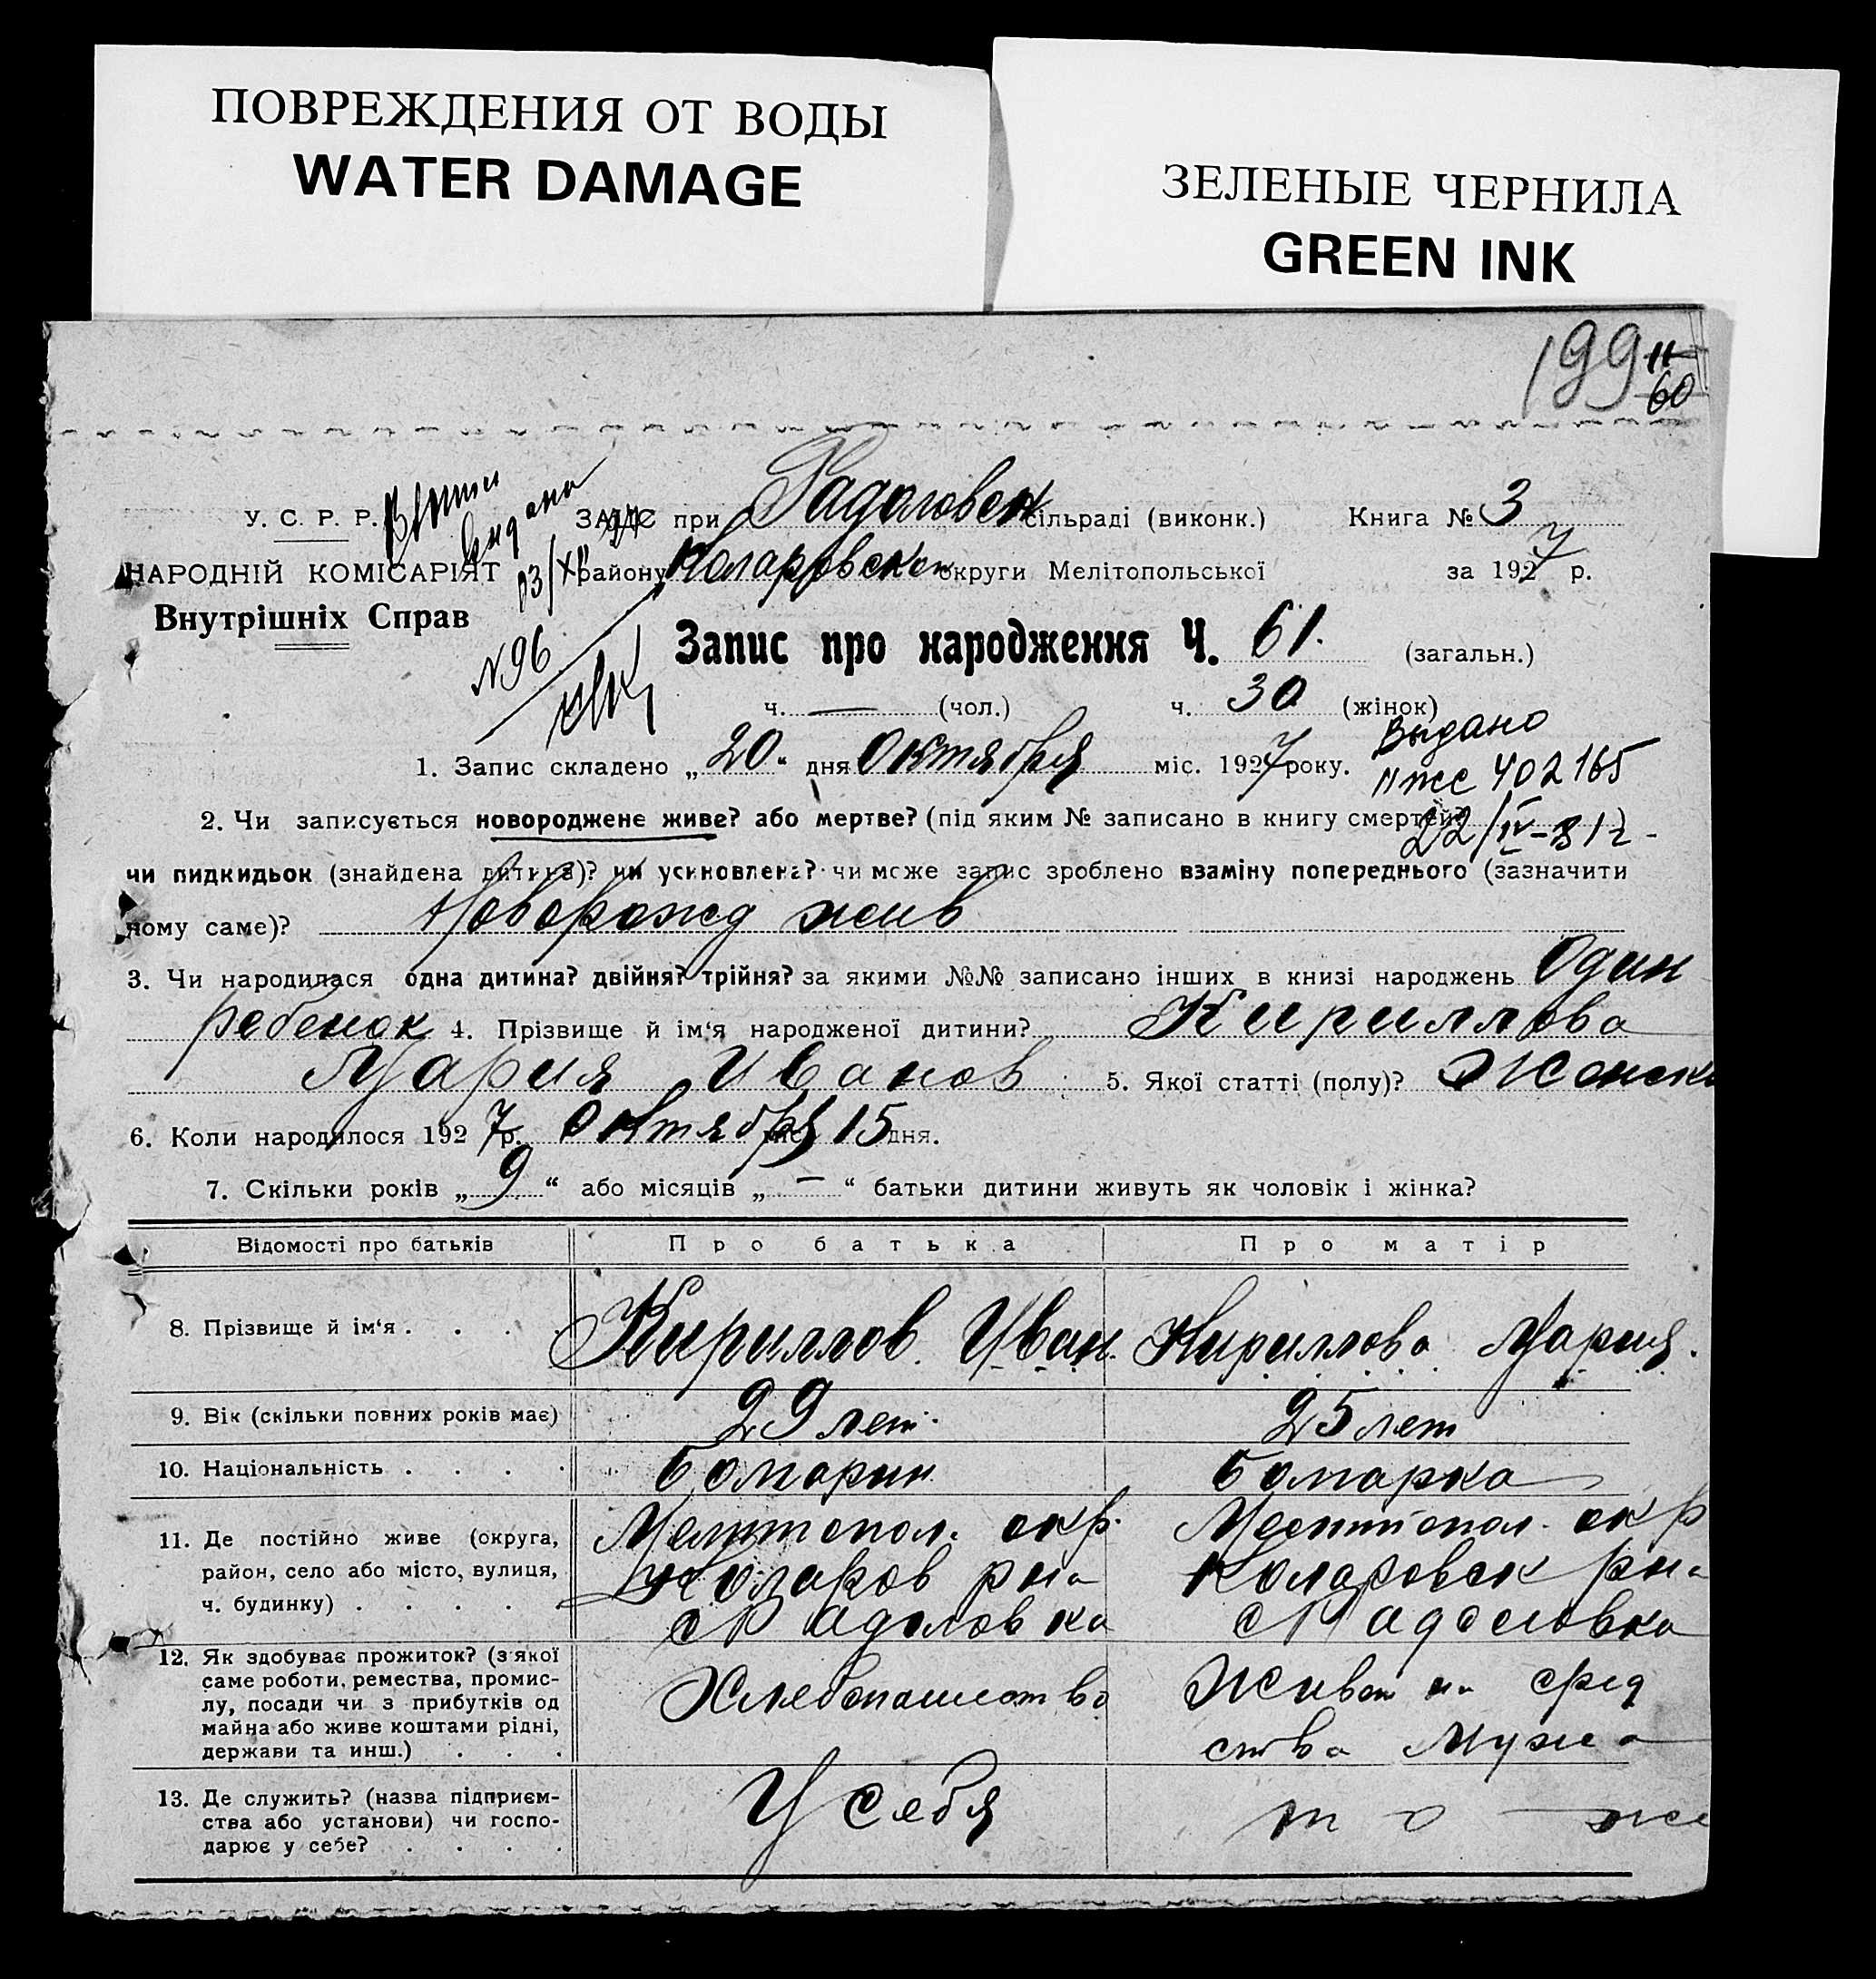 ПОВРЕЖДЕНИЯ ОТ ВОДЫ
WATER DAMAGE
ЗЕЛЕНЫЕ ЧЕРНИЛА
GREEN INK
199 11
60
У. С. Р. Р. ЗАГС при Радоловск сільраді (виконк.) Книга № 3
выдана
НАРОДНІЙ КОМІСАРІЯТ району Коларовск округи Мелітопольської за 1927 р.
Внутрішніх Справ
N 96
Запис про народження Ч. 61. (загальн.)
ч. — (чол.) ч. 30 (жінок)
Выдано
1. Запис складено „20“ дня Октября міс. 1927 року.
402165
2. Чи записується новороджене живе? або мертве? (під яким № записано в книгу смертей)
22/IV-31 г
чи пидкидьок (знайдена дитина)? чи усиновлена? чи може запис зроблено взаміну попереднього (зазначити
чому саме)? Новорожд жив
3. Чи народилася одна дитина? двійня? трійня? за якими №№ записано інших в книзі народжень Один
ребенок 4. Прізвище й ім‘я народженої дитини? Кириллова
Мария Иванов 5. Якої статті (полу)? Женски
6. Коли народилося 1927 р. Октября міс. 15 дня.
7. Скільки років „9“ або місяців „—“ батьки дитини живуть як чоловік і жінка?
Відомості про батьків Про батька Про матір
8. Прізвище й ім‘я . . . . Кириллов Иван. Кириллова Мария.
9. Вік (скільки повних років має) 29 лет. 25 лет
10. Національність . . . . болгарин болгарка
11. Де постійно живе (округа, Мелитопол. окр. Мелитопол. окр
район, село або місто, вулиця, Коларов рна Коларовск рна
ч. будинку) . . . . . с Радоловка с Радоловка
12. Як здобуває прожиток? (з якої
саме роботи, ремества, промис- Хлебопашество Живет на сред
лу, посади чи з прибутків од
майна або живе коштами рідні, ства Мужа
держави та инш.) . . .
13. Де служить? (назва підприєм-
ства або установи) чи госпо- У себя то же
дарює у себе? . . . .